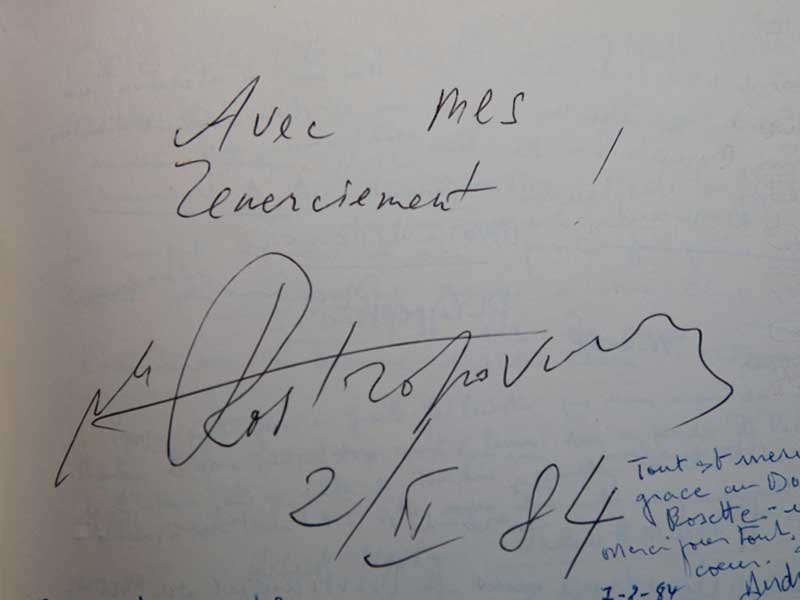 Avec mes
remerciement !
M Rostropovich
2/II 84
Tout est
grace au
Rosette
merci pour tout,
coeur.
1-2-84 André